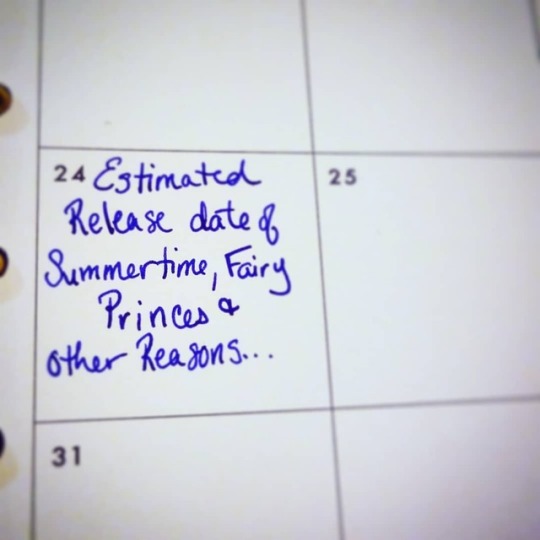 24 Estimated
Release date of
Summertime, Fairy
Princes &
other Reasons...
25
31